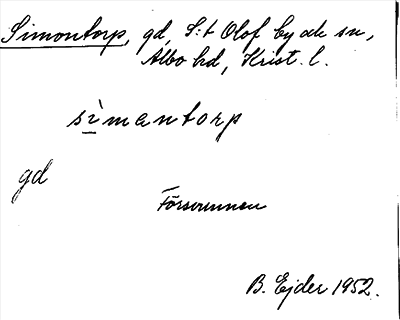 Simontorp, gd, S:t Olof by ak sn,
Albo hd, Krist. l.
sìmantorp
gd
Försvunnen
B. Ejder 1952.